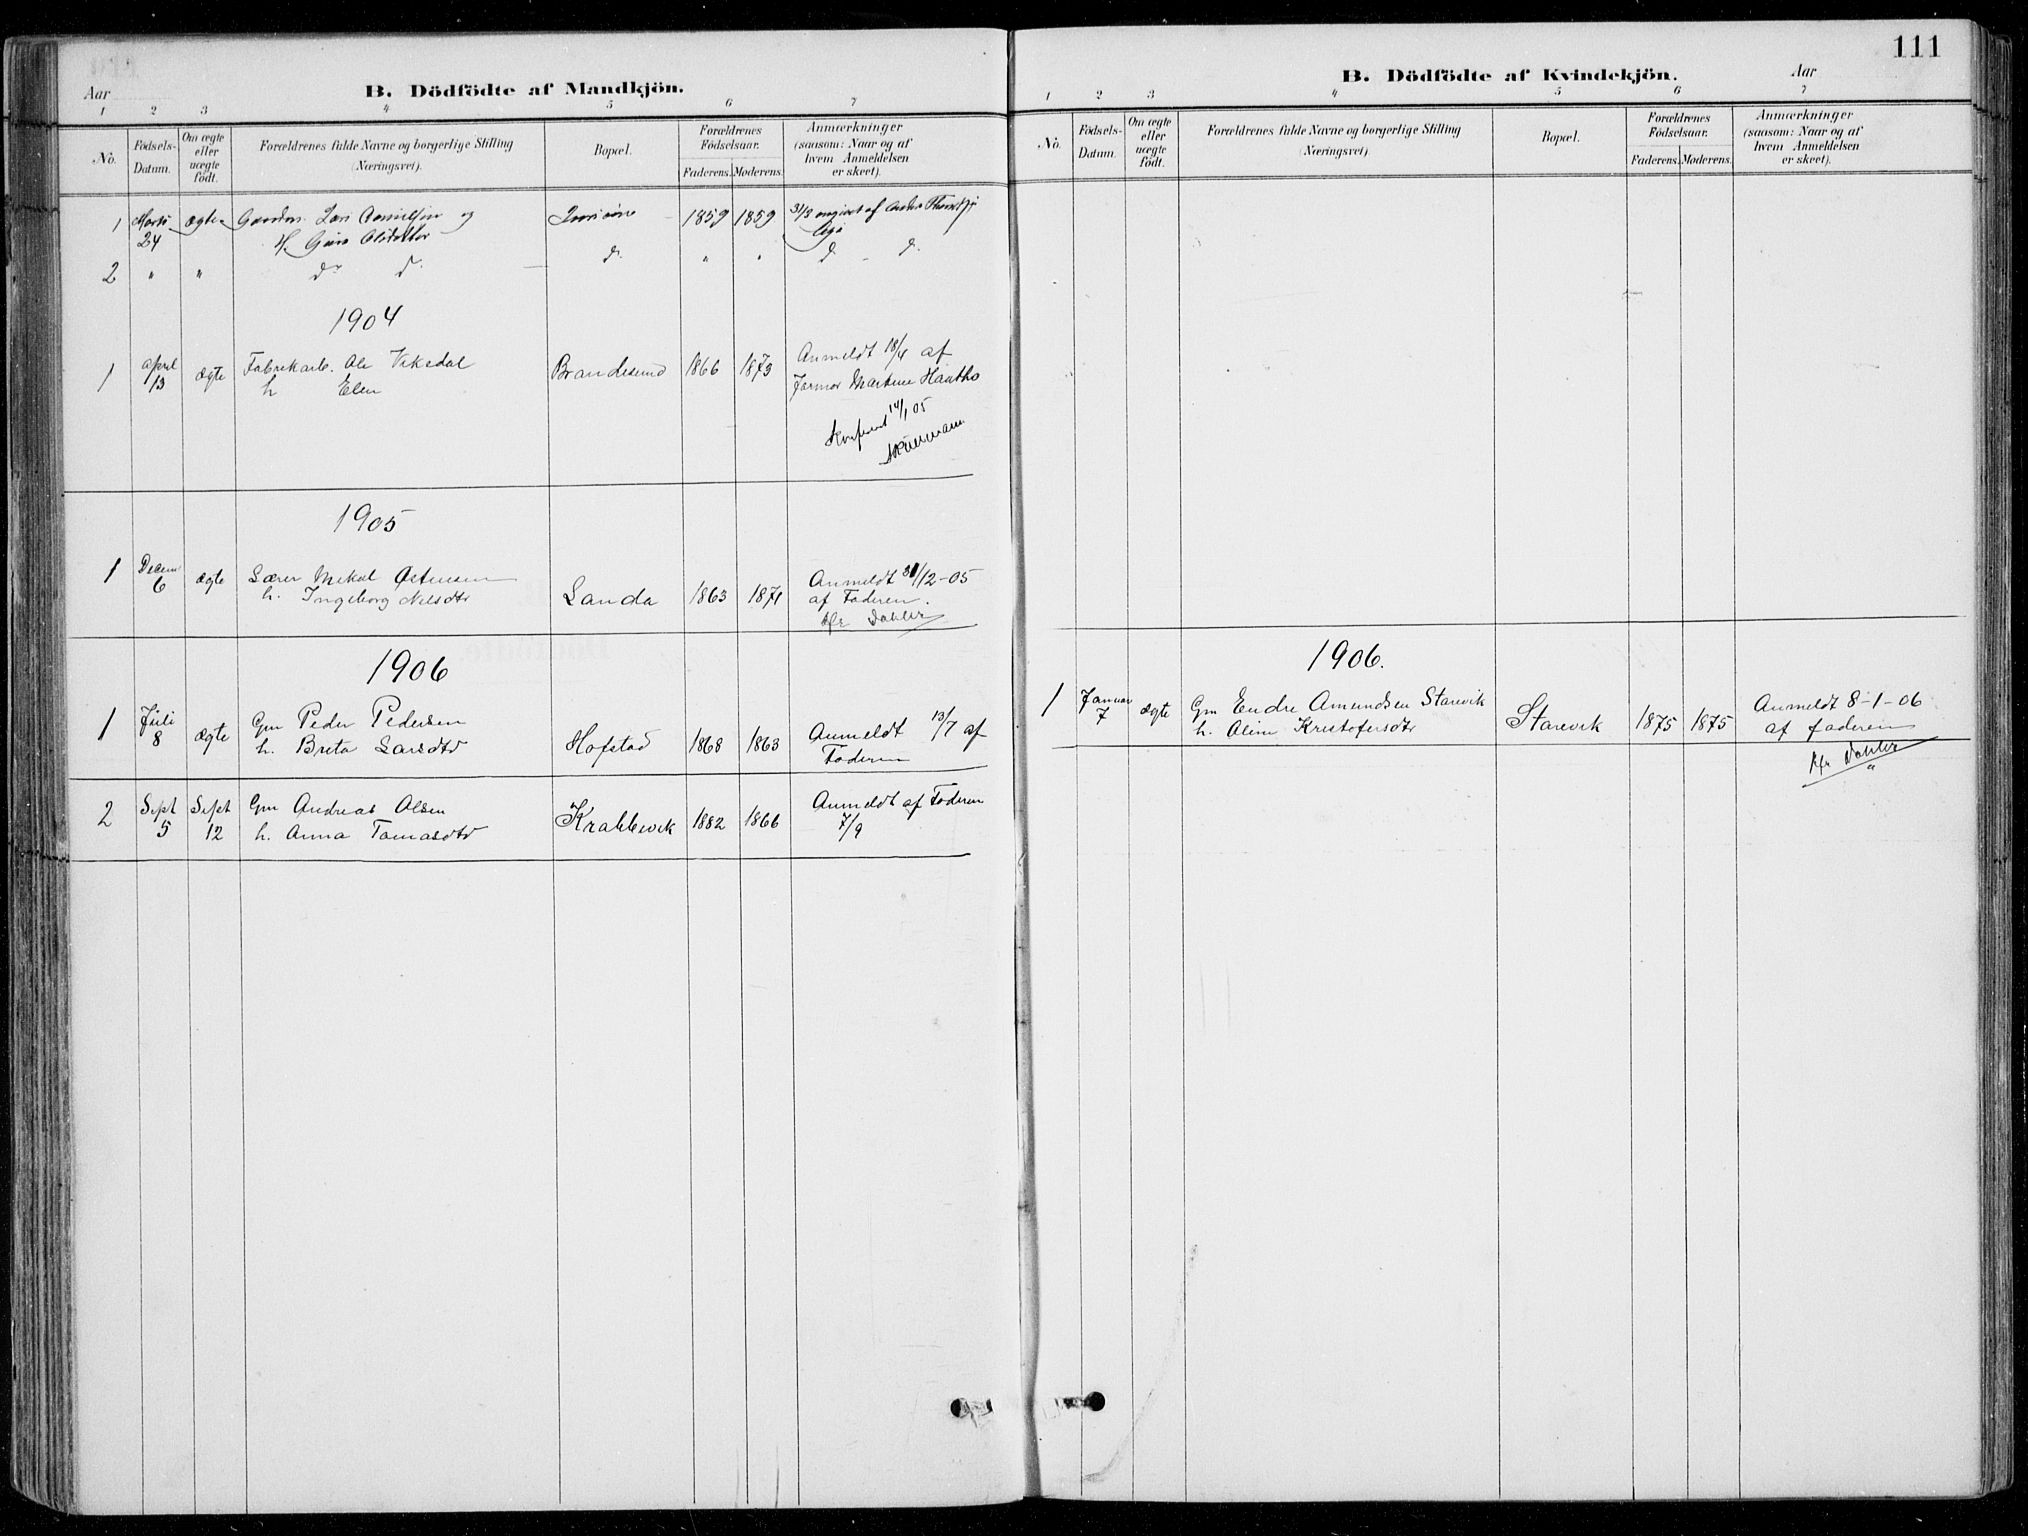 111
Aar
B. Dödfödte af Mandkjön.
1 2 3 4 5 6 7
No.
Födsels-
Datum.
Om ægte
eller
uægte
födt.
Forældrenes fulde Navne og borgerlige Stilling
(Næringsvei).
Bopæl.
Forældrenes
Födselsaar.
Faderens. Moderens.
Anmærkninger
(saasom: Naar og af
hvem Anmeldelsen
er skeet).
1 Marts ægte og 1859 1859 31/3 af
24
2 " " d. d. d. " " d. d.
1904
1 April ægte Fabrikarb. Ole Viksdal Brandesund 1866 1873 Anmeldt 18/4 af
13 h Elen Farmor Martine
14/1 05
1905
1 Decem ægte Lærer Mikal Østensen Landa 1863 1871 Anmeldt 31/12-05
6 h. Ingeborg Nilsdtr af Faderen.
Dahler
1906
1 Juli ægte Gm Peder Pedersen Hofstad 1868 1863 Anmeldt 13/7 af
8 h. Brita Larsdtr Faderen
2 Sept Sept Gm Andreas Olsen Krabbevik 1882 1866 Anmeldt af Faderen
5 12 h. Anna Tomasdtr 7/9
B. Dödfödte af Kvindekjön.
Aar
1 2 3 4 5 6 7
No.
Födsels-
Datum.
Om ægte
eller
uægte
födt.
Forældrenes fulde Navne og borgerlige Stilling
(Næringsvei).
Bopæl.
Forældrenes
Födselsaar.
Faderens. Moderens.
Anmærkninger
(saasom: Naar og af
hvem Anmeldelsen
er skeet).
1906.
1 Januar ægte Gm Endre Amundsen Starevik Starevik 1875 1875 Anmeldt 8-1-06
7 h. Oline Kristofersdtr af faderen
Dahler
"